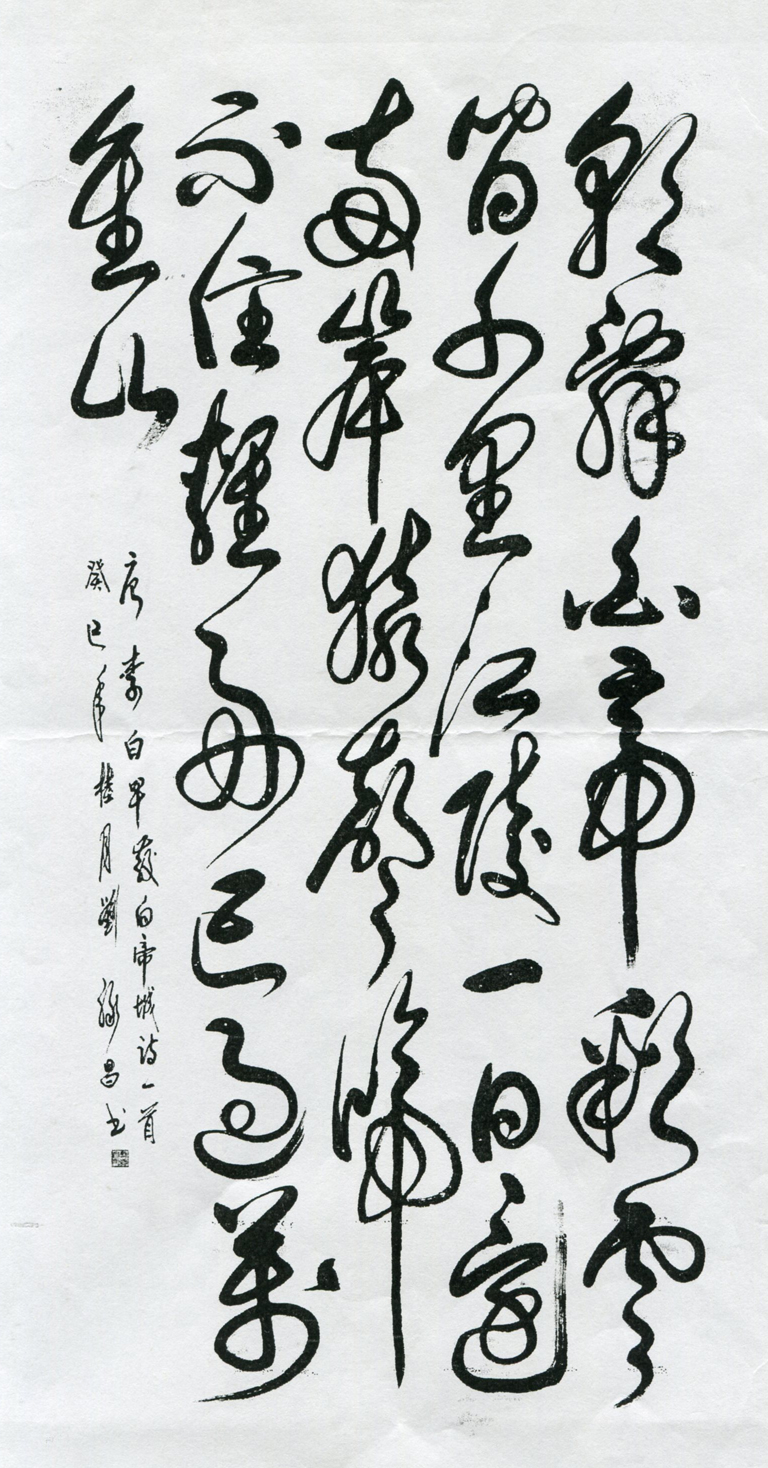 朝辭白帝彩雲
間千里江陵一日還
兩岸猿聲啼
不住輕舟已過萬
重山
唐李白早發白帝城詩一首
癸巳年桂月劉昌書